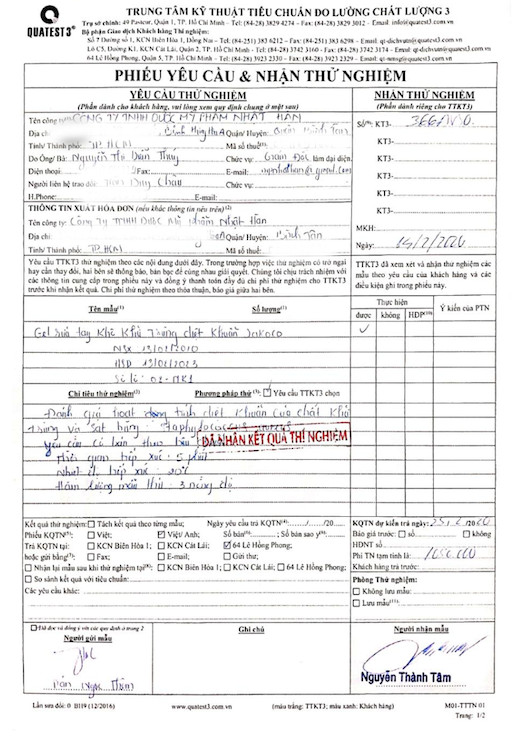 QUATEST3®
TRUNG TÂM KỸ THUẬT TIÊU CHUẨN ĐO LƯỜNG CHẤT LƯỢNG 3
Trụ sở chính: 49 Pasteur, Quận 1, TP. Hồ Chí Minh - Tel: (84-28) 3829 4274 Fax: (84-28) 3829 3012 - Email: info@quatest3.com.vn
Bộ phận Giao dịch Khách hàng Thí nghiệm:
Số 7 Đường số 1, KCN Biên Hòa 1, Đồng Nai - Tel: (84-251) 383 6212 Fax: (84-251) 383 6298 - Email: qt-dichvutn@quatest3.com.vn
Lô C5, Đường K1, KCN Cát Lái, Quận 2, TP. Hồ Chí Minh - Tel: (84-28) 3742 3160 Fax: (84-28) 3742 3174 - Email: qt-dichvutn@quatest3.com.vn
64 Lê Hồng Phong, Quận 5, TP. Hồ Chí Minh - Tel: (84-28) 3923 2339 Fax: (84-28) 3923 2330
PHIẾU YÊU CẦU & NHẬN THỬ NGHIỆM
YÊU CẦU THỬ NGHIỆM
(Phần dành cho khách hàng, vui lòng xem quy định chung ở mặt sau)
NHẬN THỬ NGHIỆM
(Phần dành riêng cho TTKT3)
Tên công ty: CÔNG TY TNHH DƯỢC MỸ PHẨM NHẬT HÀN
Địa chỉ: Quận/ Huyện: Bình Tân
Tỉnh/ Thành phố: TP.HCM Mã số thuế
Do Ông/ Bà: Nguyễn Thị Diễm Thúy Chức vụ: Giám Đốc làm đại diện.
Điện thoại Fax: E-mail:
Người liên hệ trao đổi: Chức vụ:
H.Phone: E-mail:
Số: KT3-
KT3-
KT3-
KT3-
KT3-
KT3-
MKH:
Ngày: 19/2/2020
THÔNG TIN XUẤT HÓA ĐƠN (nếu khác thông tin nêu trên)
Tên công ty: Công Ty TNHH Dược Mỹ Phẩm Nhật Hàn
Địa chỉ: Quận/ Huyện: Bình Tân
Tỉnh/ Thành phố: TP.HCM Mã số thuế:
Yêu cầu TTKT3 thử nghiệm theo các nội dung dưới đây. Trong trường hợp việc thử nghiệm có trở ngại
hay cần thay đổi, hai bên sẽ thông báo, bàn bạc để cùng nhau giải quyết. Chúng tôi chịu trách nhiệm với
các thông tin cung cấp trong phiếu này và đồng ý thanh toán đầy đủ chi phí thử nghiệm cho TTKT3
trước khi nhận kết quả. Chi phí thử nghiệm theo thỏa thuận, báo giá giữa hai bên.
TTKT3 đã xem xét và nhận thử nghiệm các
mẫu theo yêu cầu của khách hàng và các
điều kiện ghi trong phiếu này.
Tên mẫu Số lượng
Thực hiện
được không HDP Ý kiến của PTN
Gel rửa tay Khô Khử Trùng chất Khuẩn
NSX
HSD 13/02/2023
Số lô: 02-MK1
Chỉ tiêu thử nghiệm Phương pháp thử Yêu cầu TTKT3 chọn
Đánh giá hoạt động tính chất Khuẩn Của chất Khử
Trùng và Sát trùng: Staphylococcus aureus
ĐÃ NHẬN KẾT QUẢ THÍ NGHIỆM
Thời gian tiếp xúc: 5 phút
Nhiệt độ tiếp xúc: 20°C
Hàm lượng mẫu thử: 3 nồng độ
Kết quả thử nghiệm: Tách kết quả theo từng mẫu; Ngày yêu cầu trả KQTN: ....../....../20....
Phiếu KQTN: Việt; Việt/ Anh; Số bản: ; Số bản sao y:
Trả KQTN tại: KCN Biên Hòa 1; KCN Cát Lái; 64 Lê Hồng Phong;
hoặc gửi bằng: Fax: E-mail: Gửi thư:
Nhận lại mẫu sau khi thử nghiệm tại: KCN Biên Hòa 1; KCN Cát Lái; 64 Lê Hồng Phong
So sánh kết quả với tiêu chuẩn:
Các yêu cầu khác:
KQTN dự kiến trả ngày: 25/2/2020
Báo giá trước: số không
HĐNT số
Phí TN tạm tính là: 1050.000
Khách hàng trả trước:
Phòng Thử nghiệm:
Không lưu mẫu:
Lưu mẫu:
Đã đọc và đồng ý với các quy định ở trang 2
Người gửi mẫu
Ghi chú
Người nhận mẫu
Nguyễn Thành Tâm
Lần sửa đổi: 0 BH9 (12/2016)
www.quatest3.com.vn
(màu trắng: TTKT3; màu xanh: Khách hàng)
M01-TTTN 01
Trang: 1/2